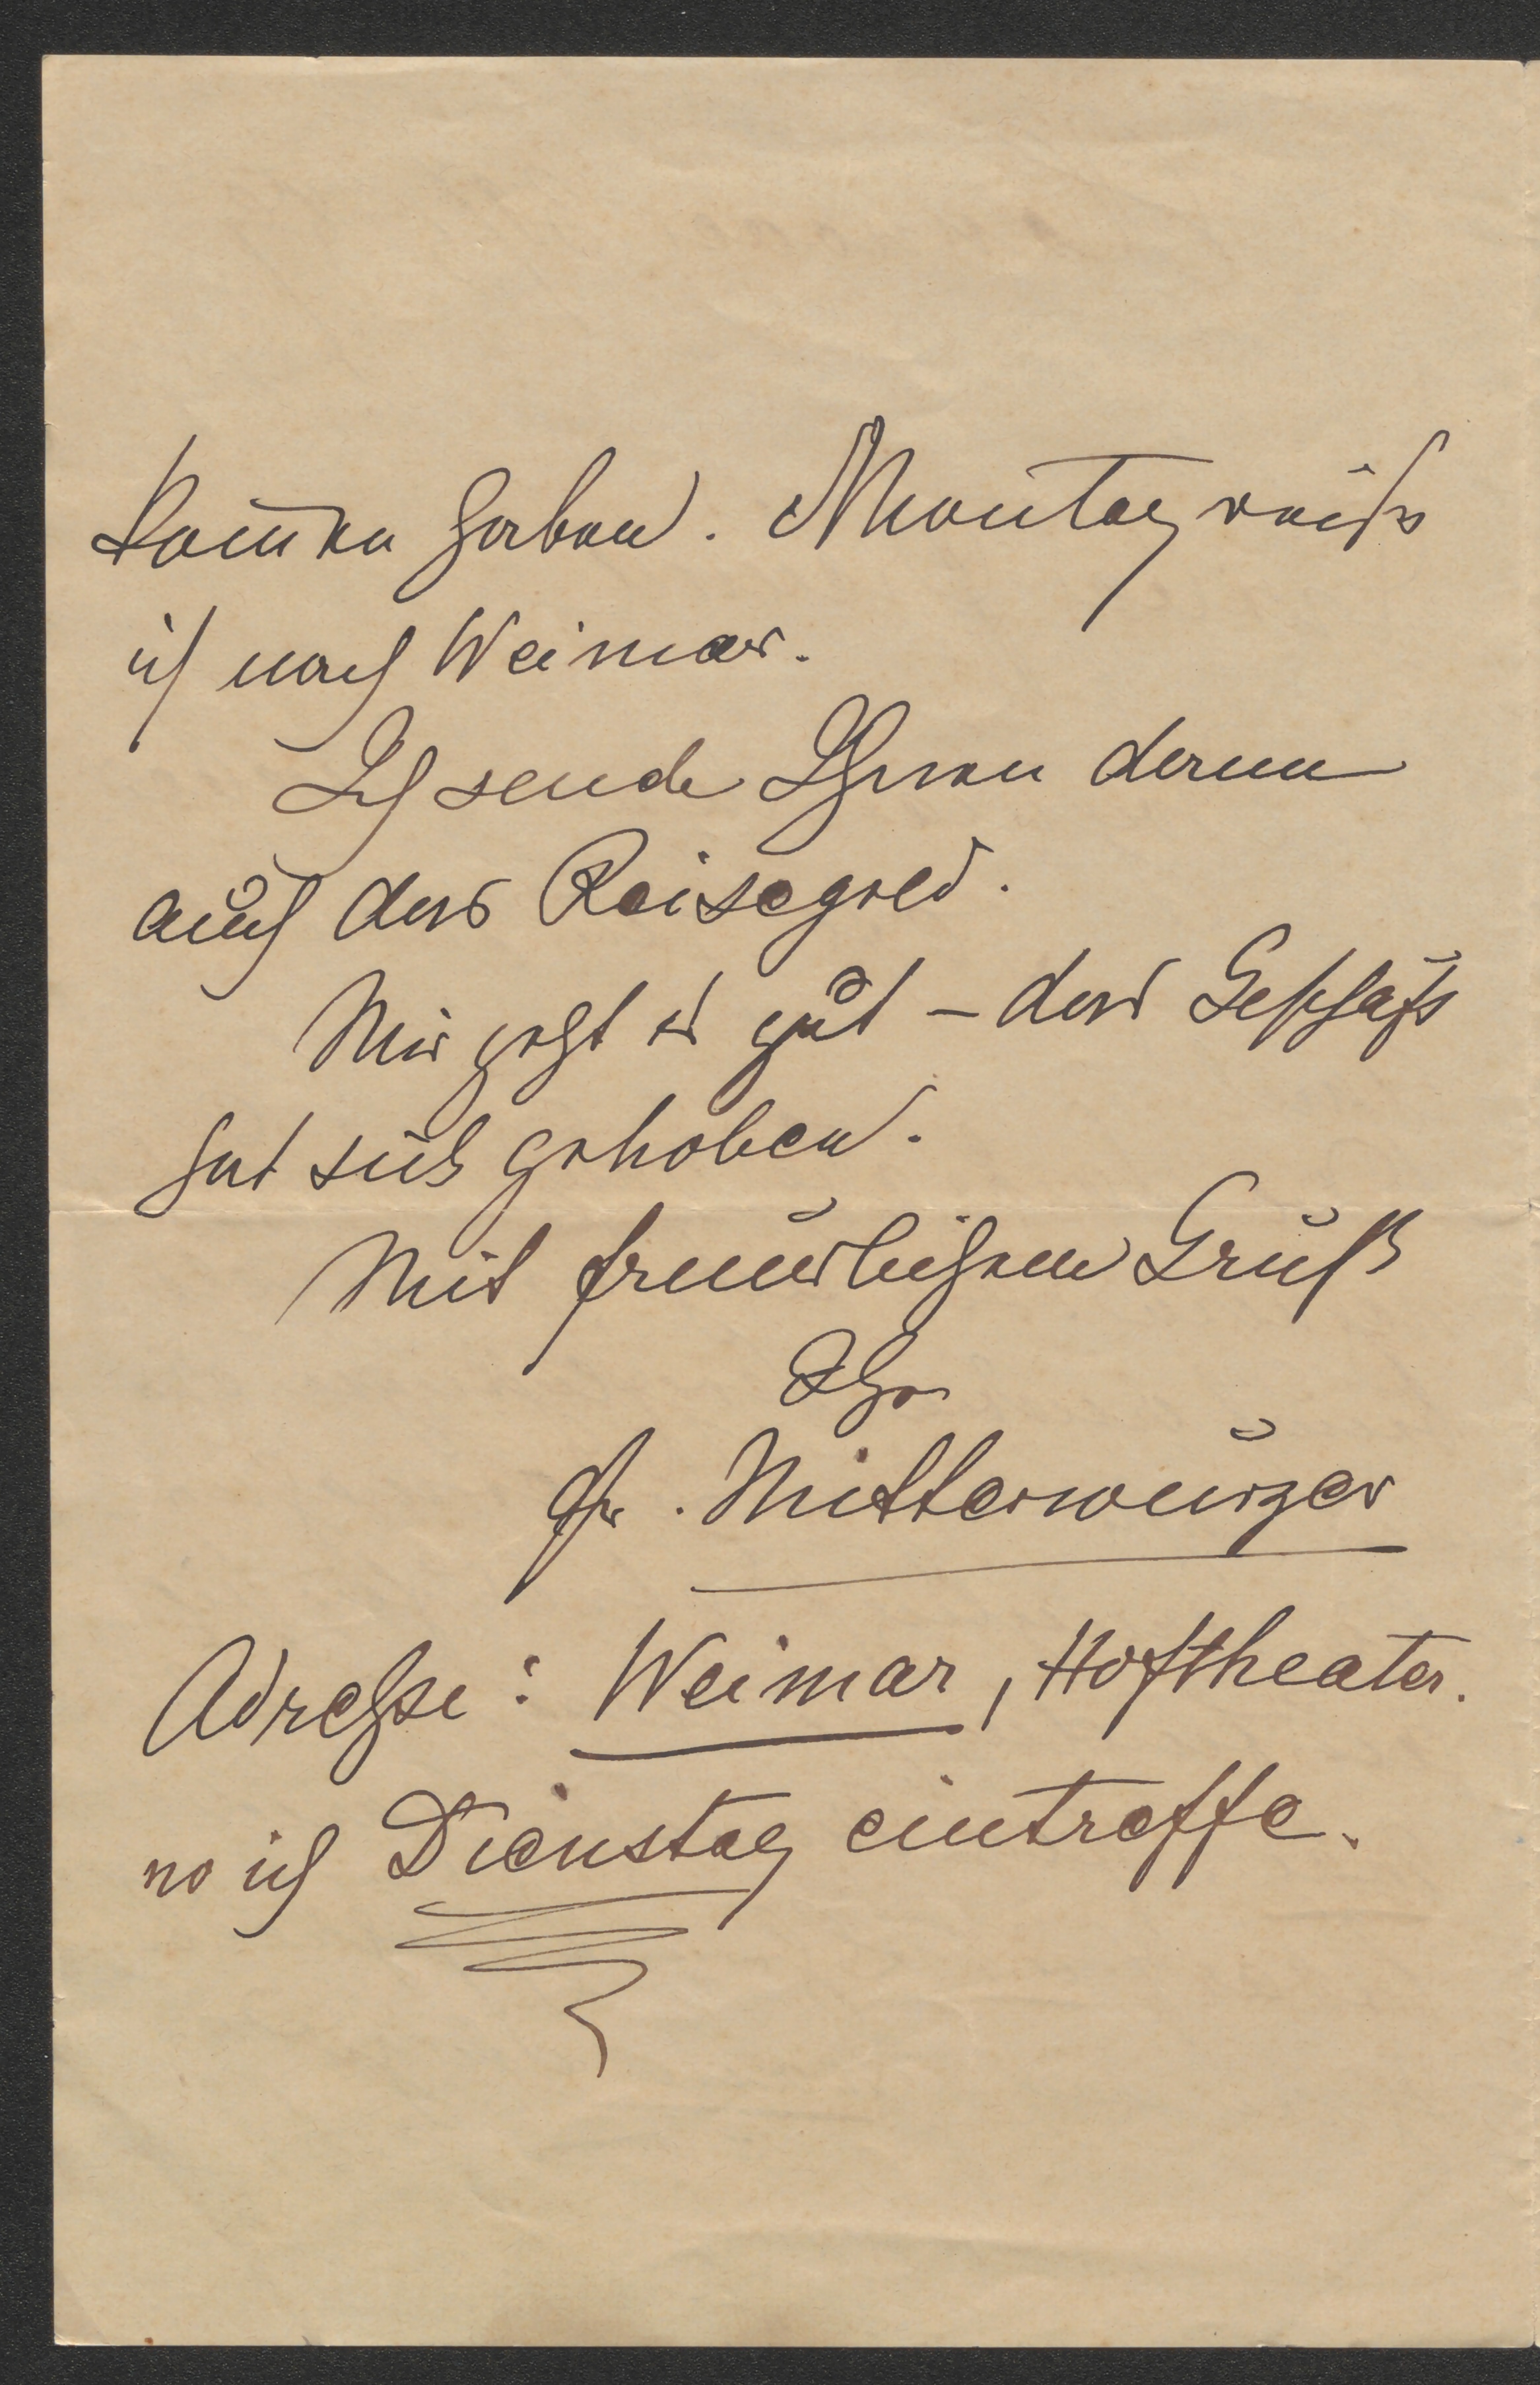 kom̅en haben. Montag reise
ich nach Weimar.
Ich sende Ihnen dann
auch das Reisegeld.
Mir geht es gut – das Geschäft
hat sich gehoben.
Mit freundlichem Gruß
Ihr
Fr. Mitterwurzer
Adresse: Weimar, Hoftheater.
wo ich Dienstag eintreffe.